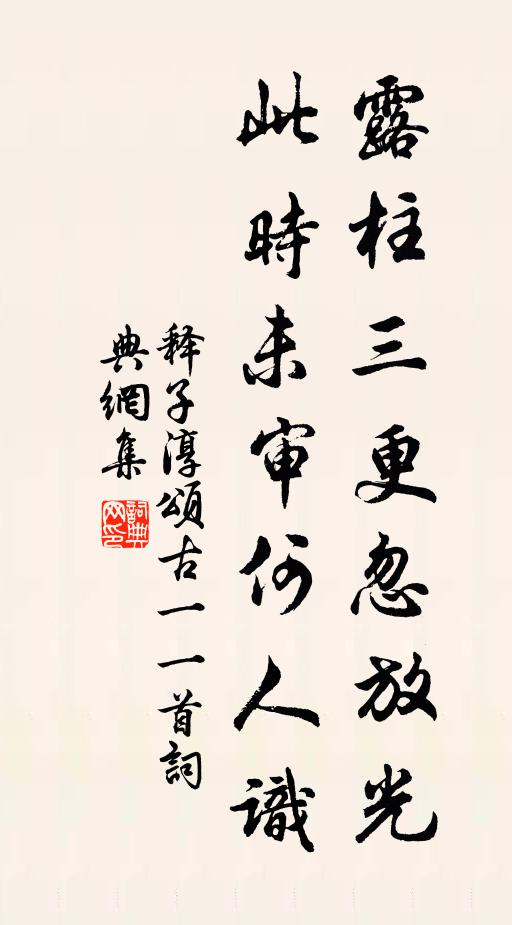 露柱三更忽放光
此時未审何人識
释子淳頌古一一首詞
典網集
詞典网印